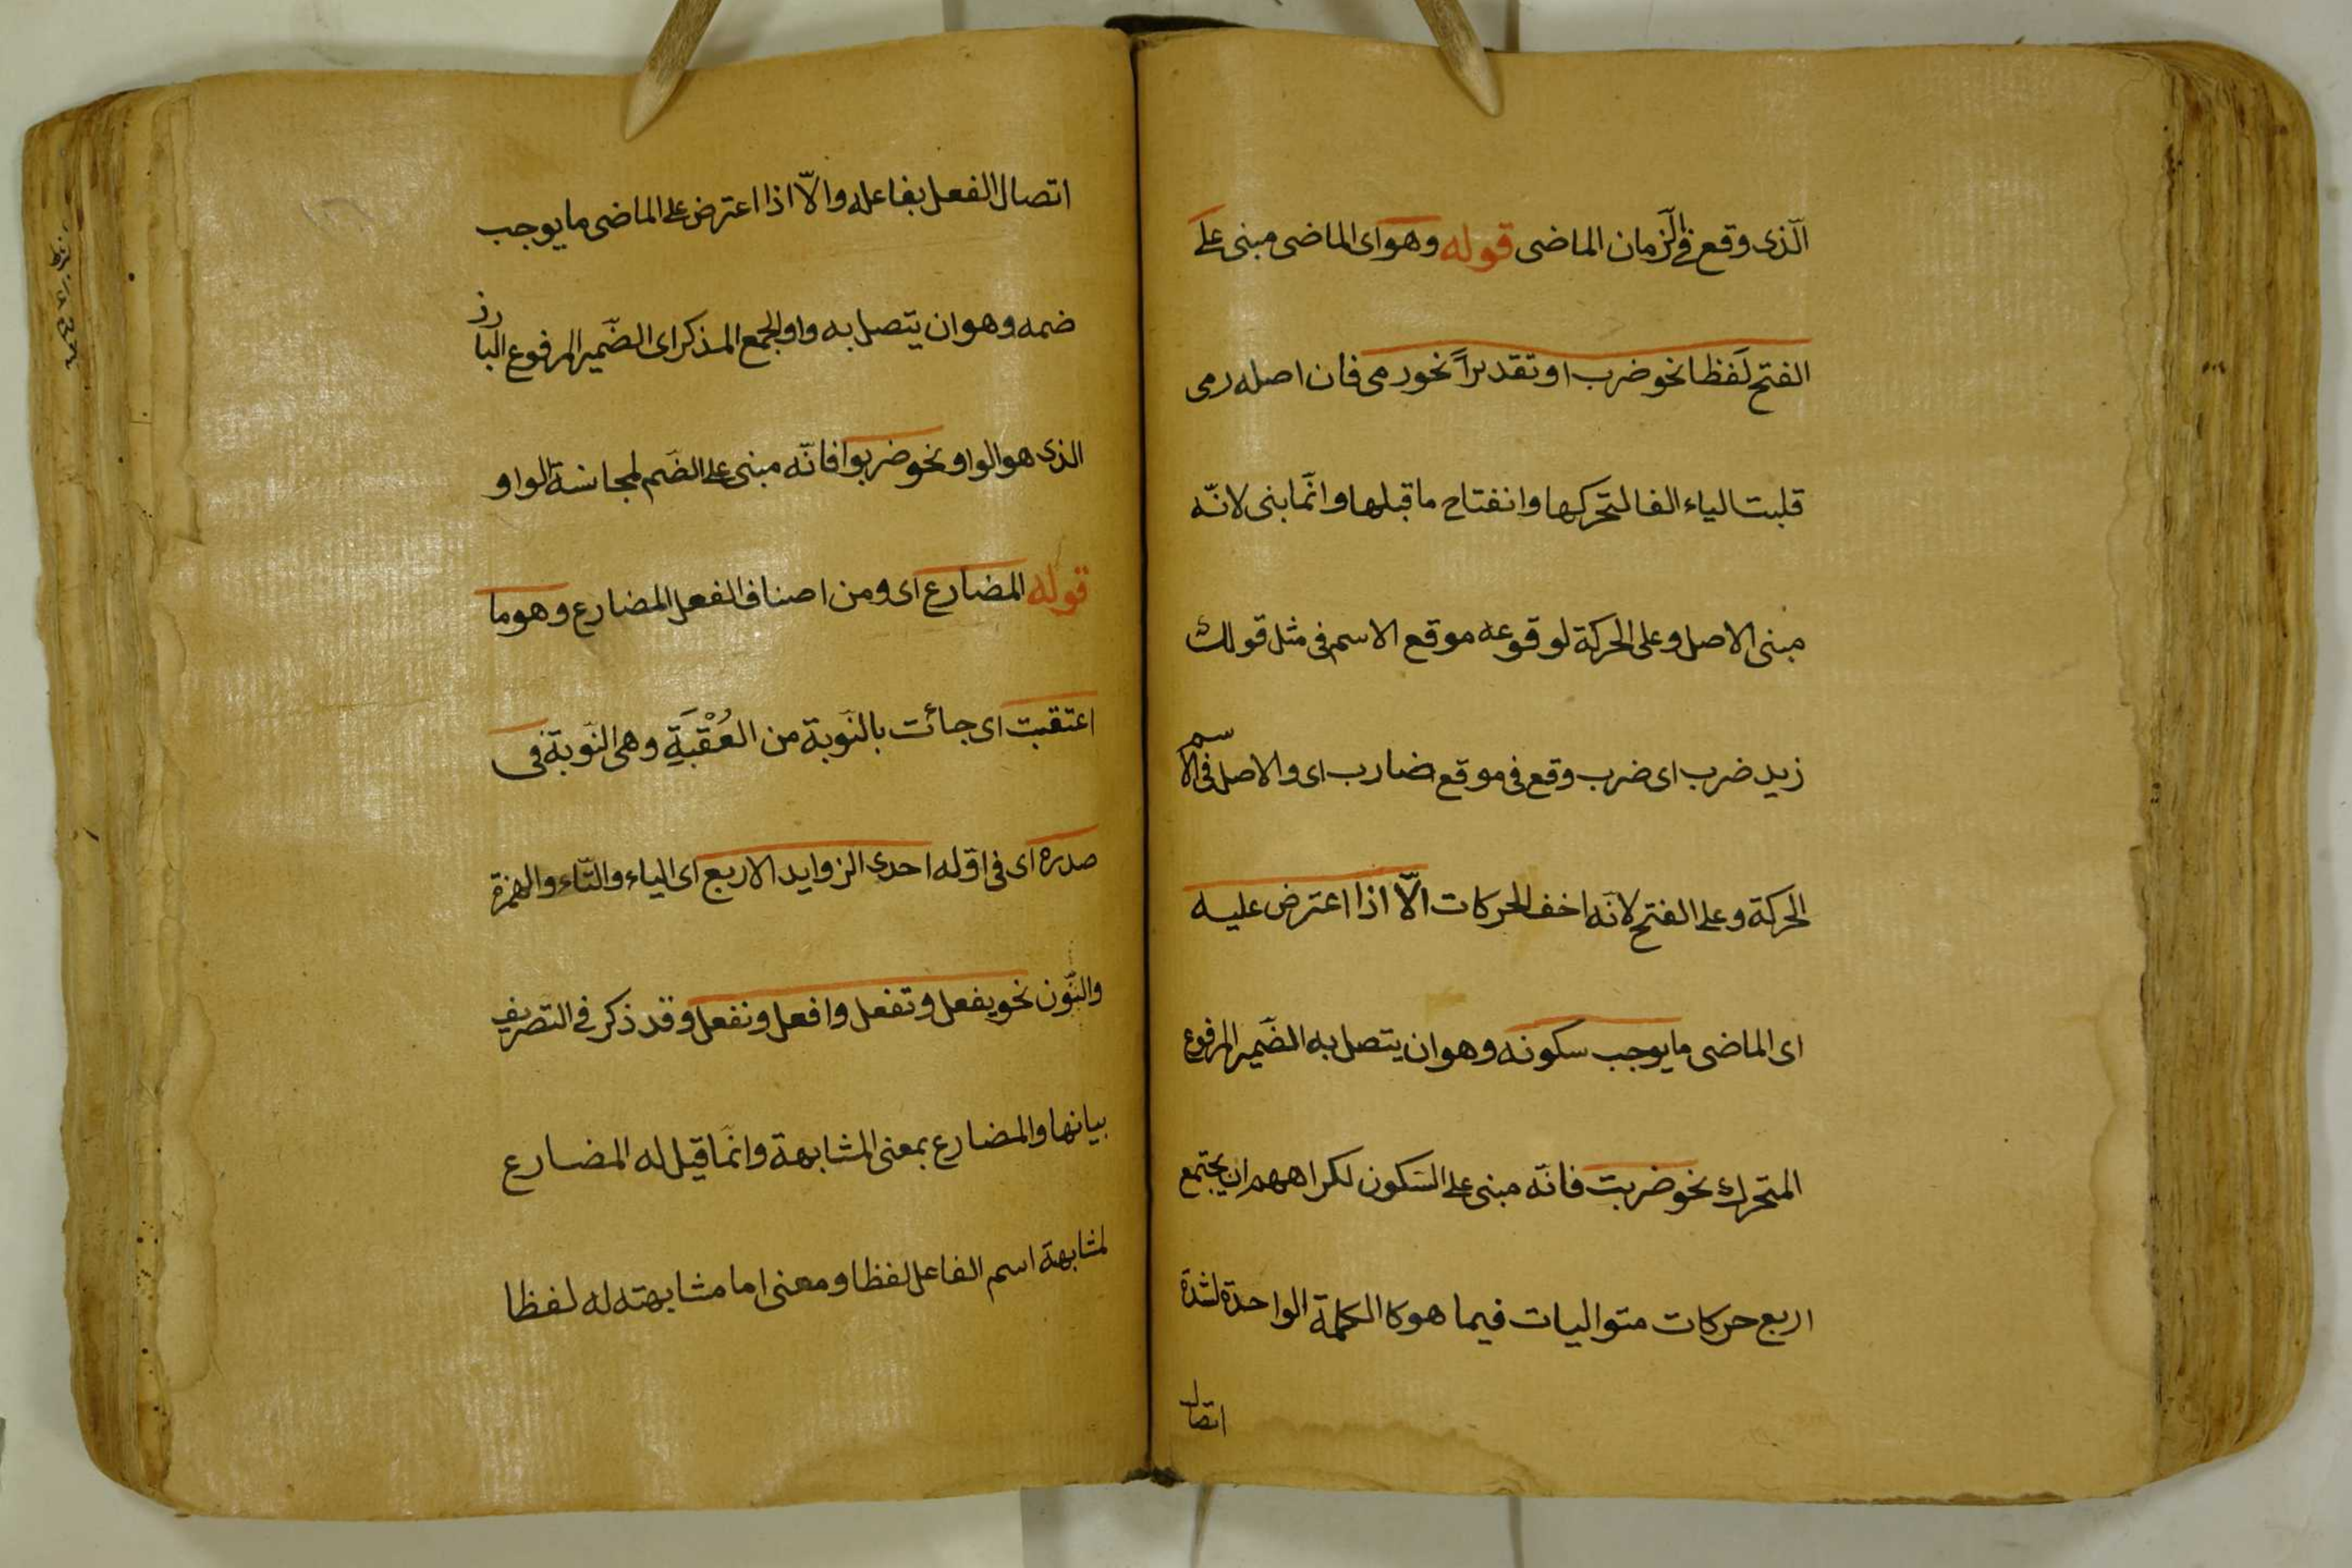 الّذى وقع فى الزّمان الماضى قوله وهو اى الماضى مبنى على
الفتح لفظا نحو ضرب او تقديراً نحو رمى فان اصله رمى
قلبت الياء الفا لتحركها وانفتاح ما قبلها وانّما بنى لانّه
مبنى الاصل وعلى الحركة لوقوعه موقع الاسم فى مثل قولك
زيد ضرب اى ضرب وقع فى موقع ضارب اى والاصل فى الاسم
الحركة وعلى الفتح لانّه اخف الحركات الّا اذا اعترض عليه
اى الماضى ما يوجب سكونه وهو ان يتصل به الضّمير المرفوع
المتحرك نحو ضربت فانّه مبنى على السّكون لكراههم ان يجتمع
اربع حركات متواليات فيما هو كا الكلمة الواحدة لشدة
اتصال
اتصال الفعل بفاعله والّا اذا اعترض على الماضى ما يوجب
ضمه وهو ان يتصل به واو الجمع المذكر اى الضّمير المرفوع البارز
الذى هو الواو نحو ضربوا فانّه مبنى على الضّم لمجانسة الواو
قوله المضارع اى ومن اصناف الفعل المضارع وهو ما
اعتقبت اى جائت بالنّوبة من العُقْبَةِ وهى النّوبة فى
صدره اى فى اوّله احدى الزوايد الاربع اى الياء والتّاء والهمزة
والنّون نحو يفعل وتفعل وافعل ونفعل وقد ذكر فى التصريف
بيانها والمضارع بمعنى المشابهة وانّما قيل له المضارع
لمشابهة اسم الفاعل لفظا ومعنى اما مشابهته له لفظا